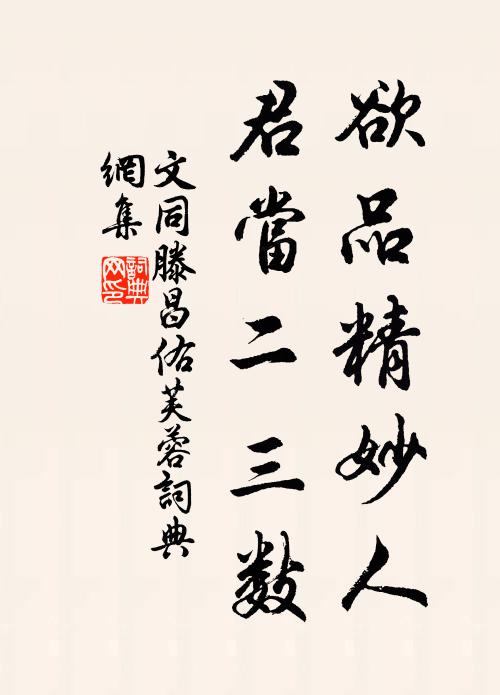 欲品精妙人
君當二三數
文同滕昌佑芙蓉詞典
網集
詞典網印